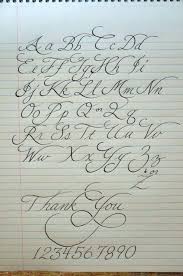 Aa Bb Cc Dd
Ee Ff Gg Hh Ii
Jj Kk Ll Mm Nn
Oo Pp Qq Rr
Rr Ss Tt Uu Vv
Ww Xx Yy Zz
z
Thank You
1234567890